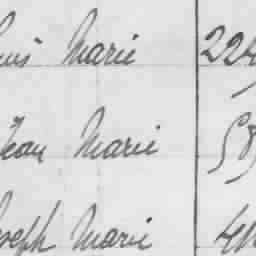 Louis Marie 224
Jean Marie 58
Joseph Marie 41